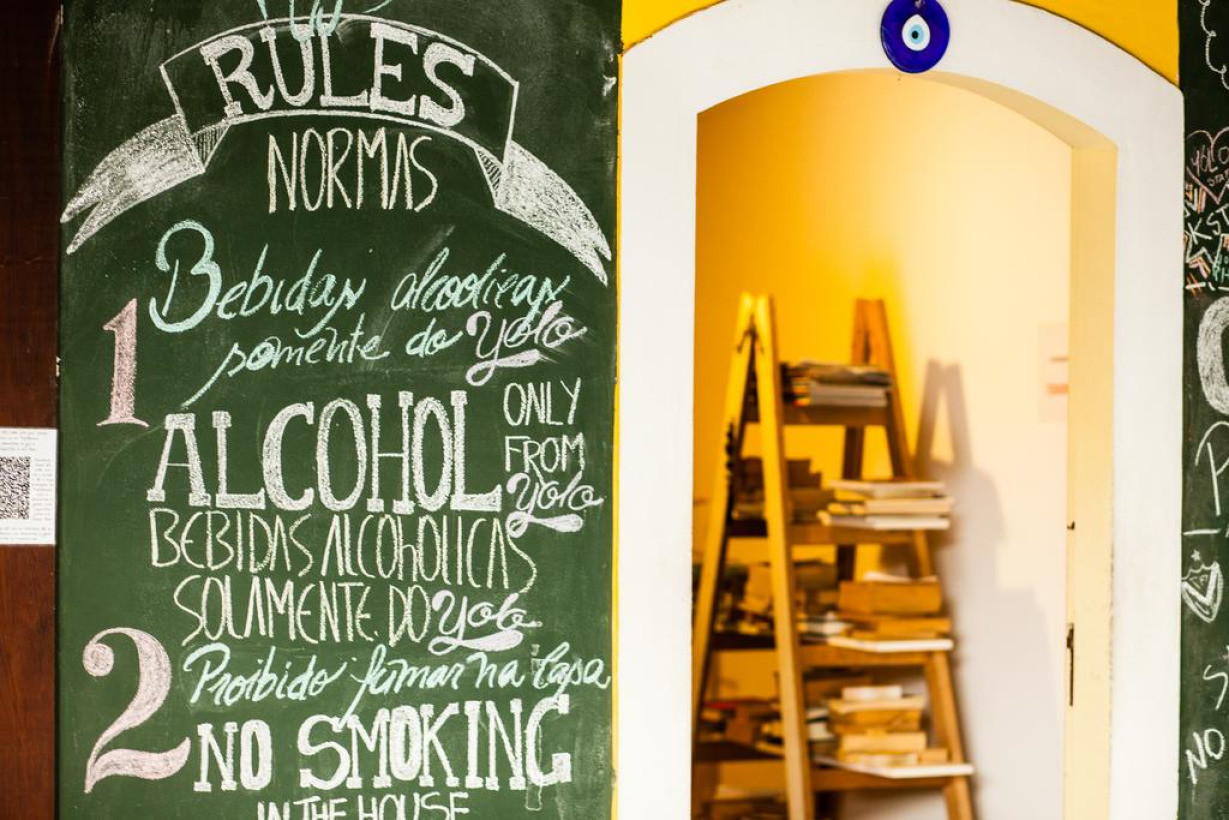 RULES
NORMAS
1
Bebidas alcoolicas
somente do Yolo
ALCOHOL
ONLY
FROM
Yolo
BEBIDAS ALCOhOLICAS
SOLAMENTE DO Yolo
2
Proibido fumar na Casa
NO SMOKING
IN THE HOUSE
NO